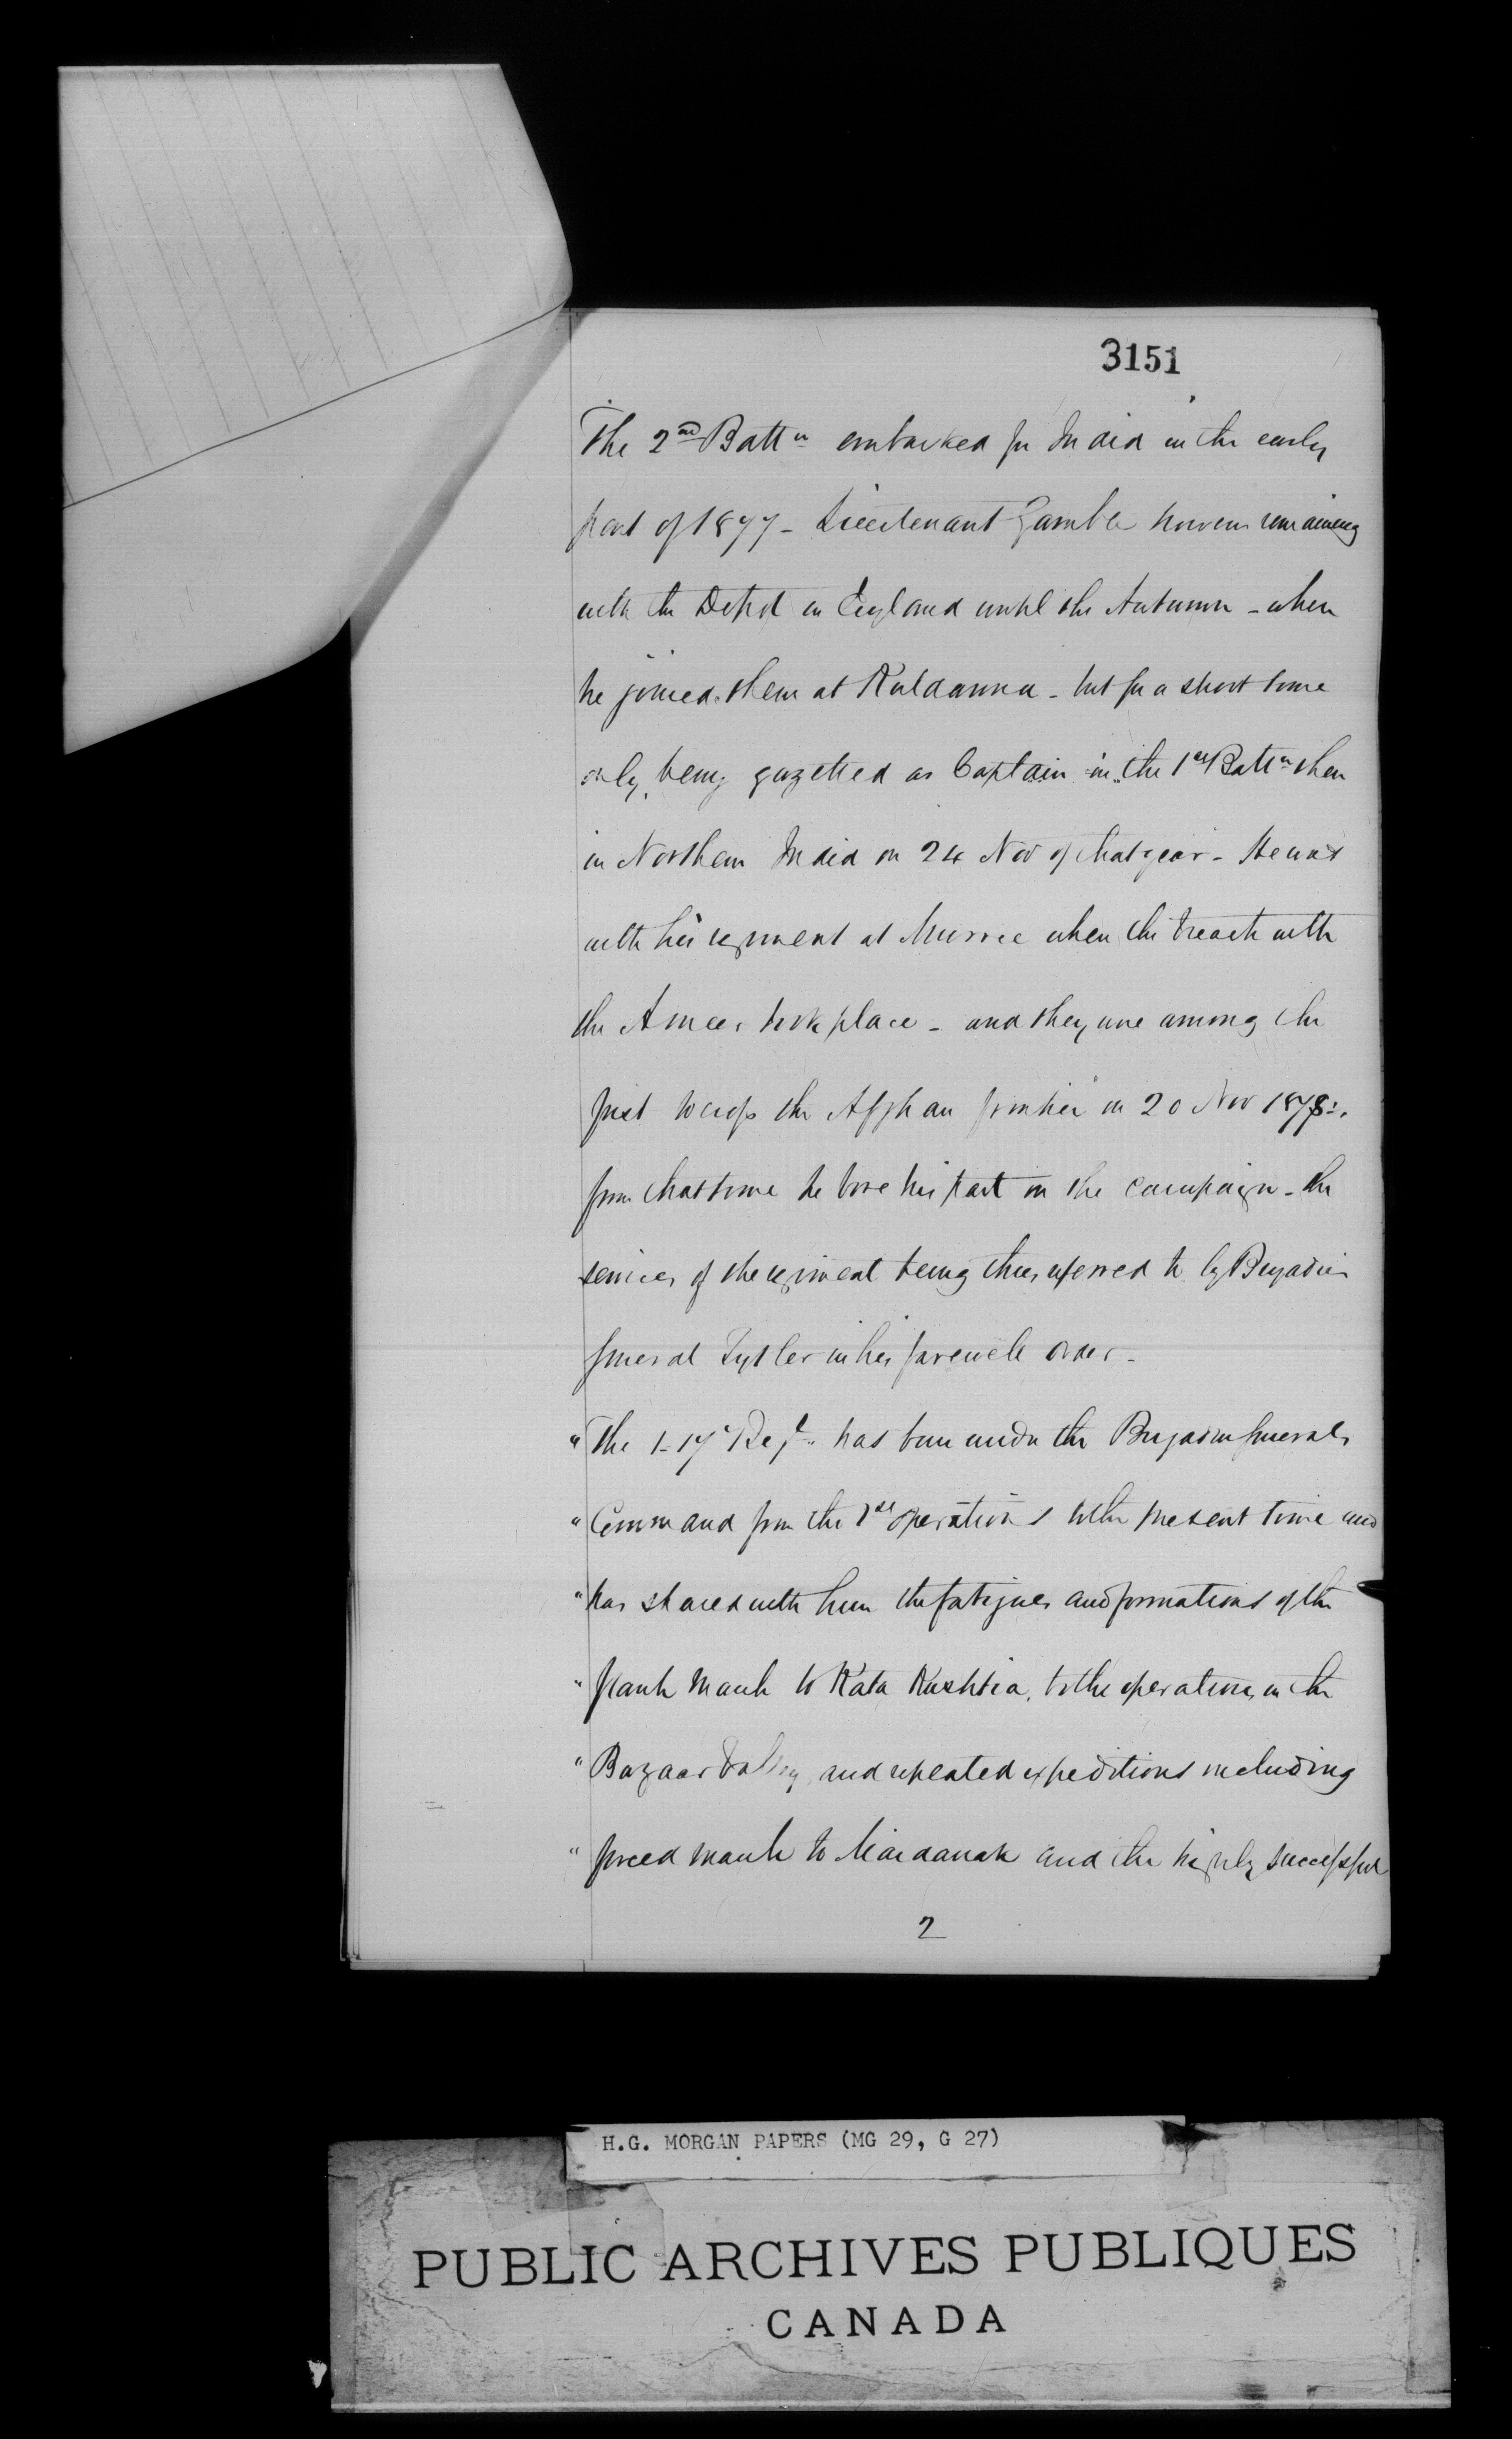 3151
The 2nd Battn embarked for India in the early
part of 1877 - Lieutenant Gamble however remaining
with the Depot in England until the Autumn - when
he joined them at Kuldanna - but for a short time
only, being gazetted as Captain in the 1st Battn then
in Northern India on 24 Nov of that year - He was
with his regiment at Murree when the breach with
the Ameer took place - and they were among the
first to cross the Afghan frontier on 20 Nov 1878.
from that time he bore his part in the campaign - the
services of the regiment being thus referred to by Brigadier
General Tytler in his farewell order -
" The 1-17 Regt. has been under the Brigadier Generals
" Command from the 1st operations to the present time and
" has shared with him the fatigues and privations of the
" flank march to Kata Kushtia, to the operations in the
" Bazaar Valley and repeated expeditions including
" forced march to Maidanak and the highly successful
2
H.G. MORGAN PAPERS (MG 29, G 27)
PUBLIC ARCHIVES PUBLIQUES
CANADA